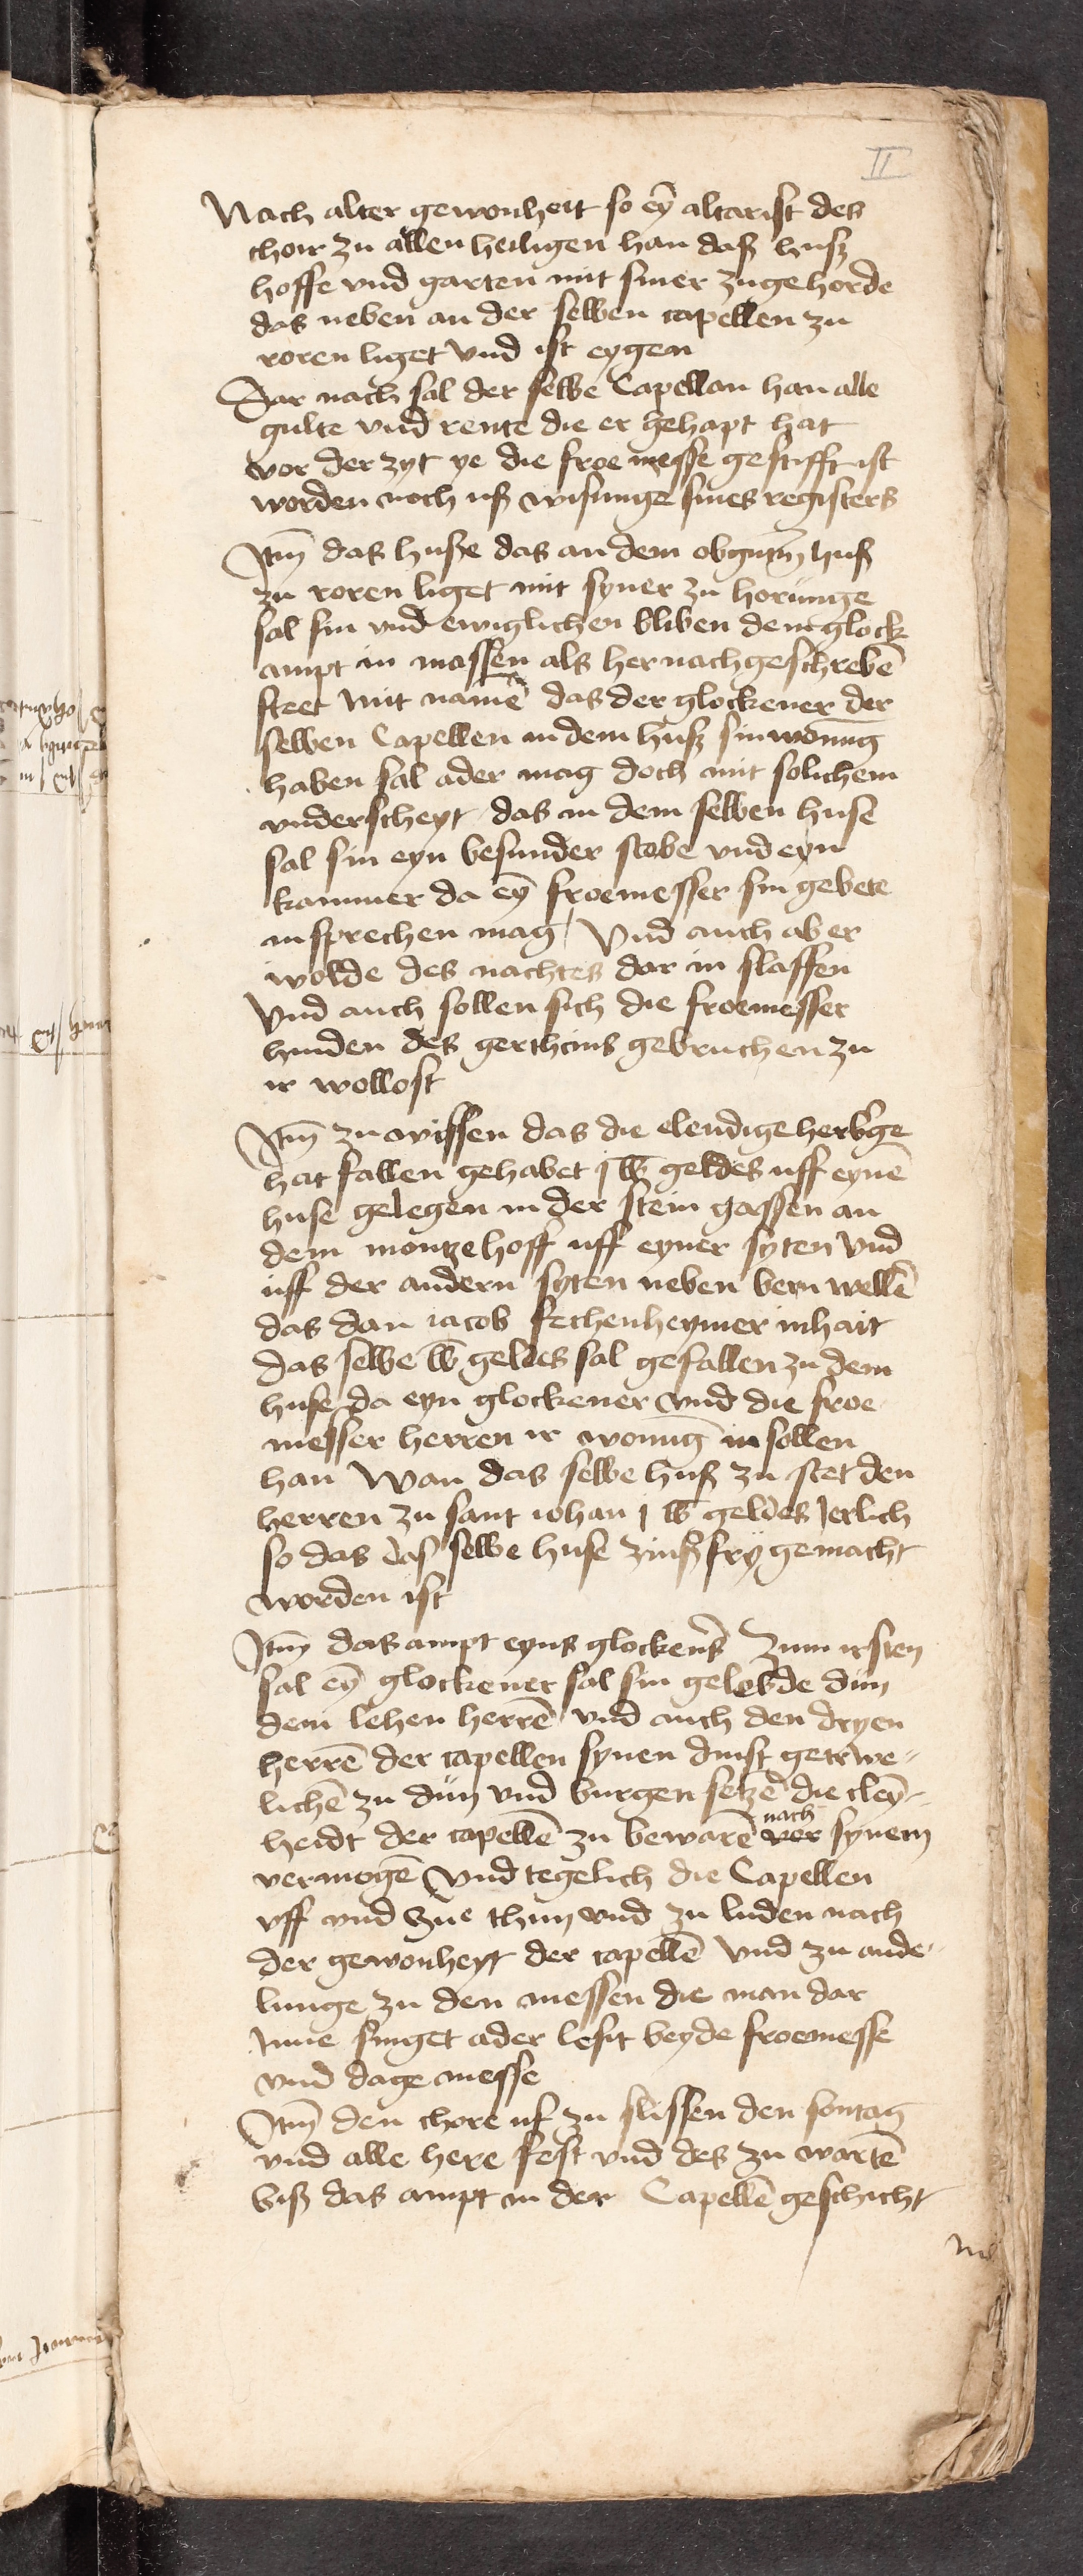 II
Nach alter gewonheit so eȳ altarist des
choir zu allen heiligen han daß huß
hoffe vnd garten mit siner zugehorde
das neben an der selben capellen zu
roren liget vnd ist eygen
Dar nach sal der selbe Capellan han alle
gulte vnd rente die er gehapt hat
vor der zyt ye die froe messe gestifft ist
worden noch uß wisunge sines registers
Itm̄ das huße das an dem obgntn̄ huß
zu roren liget mit syner zu horunge
sal sin vnd ewiglichen bliben dem glock
ampt in massen als her nach geschrebē
steet mit namē das der glockener der
selben Capellen in dem huß sin wonūg
haben sal ader mag doch mit solichem
vnderscheyt das in dem selben huse
sal sin eyn besunder stobe vnd eyn
kammer da eȳ froemesser sin gebete
in sprechen mag / Vnd auch ab er
wolde des nachtes dar in slaffen
Vnd auch sollen sich die froemesser
hinden des gerthins gebruchen zu
ir wollost
Itm̄ zu wissen das die elendige herb'ge
hat fallen gehabet j lb geldes uff eynē
huse gelegen in der stein gassen an
dem montzehoff uff eyner syten vnd
uff der andern syten neben bern wellē
das dan iacob fechenheymer inhait
das selbe lb geldes sal gefallen zu dem
huse da eyn glockener vnd die froe
messer herren ir wonūg in sollen
han Wan das selbe huß zu stet den
herren zu sant iohan j lb geldes Jerlich
so das das selbe huse zinßfry gemacht
worden ist
Itm̄ das ampt eyns glocken's Zum irsten
sal eȳ glockener sal sin gelobde dun
dem lehen herrē vnd auch den dryen
herrē der capellen synen dinst getrwe-
lichē zu dun vnd burgen setzē die cleȳ-
heidt der capellē zu bewarē nach ver synem
vermogē Vnd tegelich die Capellen
vff vnd Zue thun vnd zu luden nach
der gewonheyt der capellē vnd zu ande-
lunge zu den messen die man dar
Inne singet ader lesit beyde froemesse
vnd dage messe
Itm̄ den chore uf zu slissen den sontag
vnd alle here fest vnd des zu wartē
biß das ampt in der Capellē geschicht